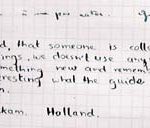 per
d, that someone is colle
ings, we doesn't use any
mething new and remem
eresting what the guide
n.
kam. Holland.